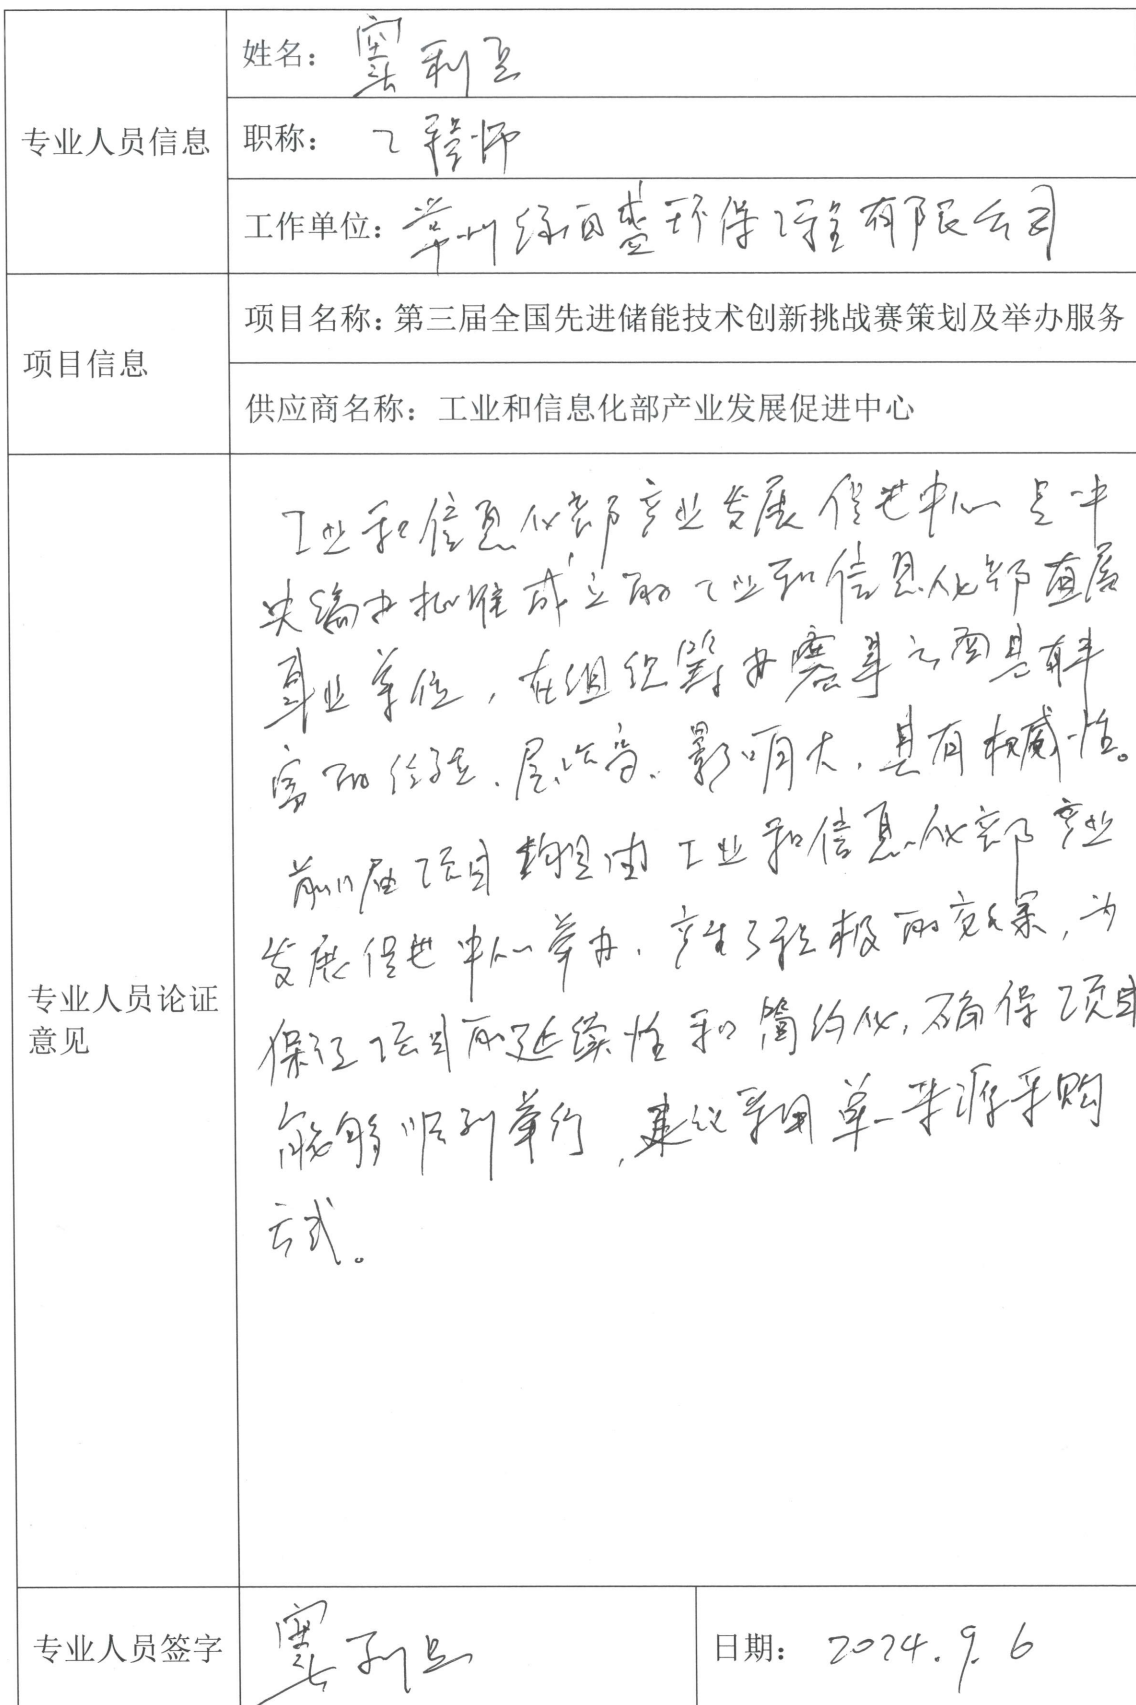 专业人员信息
姓名: 窦利亚
职称: 工程师
工作单位: 常州绿百盛环保工程有限公司
项目信息
项目名称: 第三届全国先进储能技术创新挑战赛策划及举办服务
供应商名称: 工业和信息化部产业发展促进中心
专业人员论证
意见
工业和信息化部产业发展促进中心是中
央编办批准成立的工业和信息化部直属
事业单位, 在组织筹办赛事方面具有丰
富的经验、层次高、影响大, 具有权威性。
前几届项目均由工业和信息化部产业
发展促进中心举办, 产生了积极的效果, 为
保证项目的延续性和简约化, 确保项目
能够顺利举行, 建议采用单一来源采购
方式。
专业人员签字
窦利亚
日期: 2024.9.6